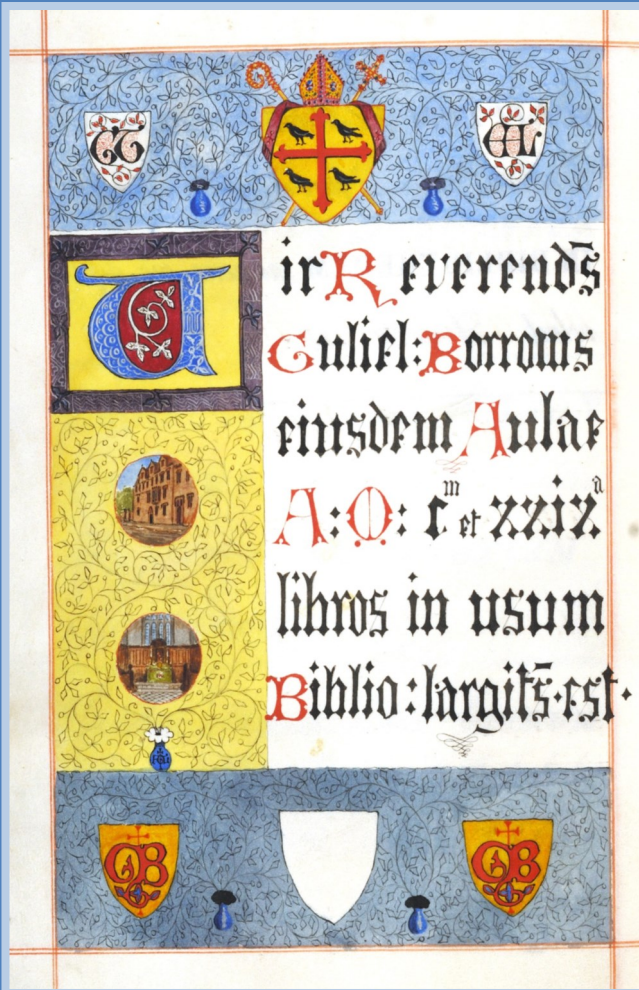 Vir Reverends̄
Guliel: Borrows
eiusdem Aulae
A:M: cᵐ et xxixᵃ
libros in usum
Biblio: largits̄·est·
GB GB